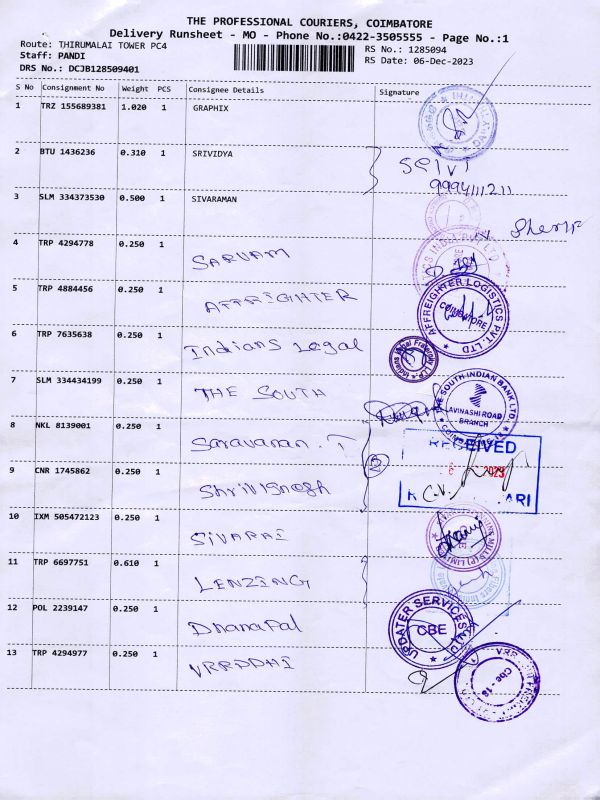 THE PROFESSIONAL COURIERS, COIMBATORE
Delivery Runsheet - MO - Phone No.:0422-3505555 - Page No.:1
Route: THIRUMALAI TOWER PC4
RS No.: 1285094
Staff: PANDI
RS Date: 06-Dec-2023
DRS No.: DCJB128509401
S No Consignment No Weight PCS Consignee Details Signature
1 TRZ 155689381 1.020 1 GRAPHIX
2 BTU 1436236 0.310 1 SRIVIDYA
Selvi
9994111211
3 SLM 334373530 0.500 1 SIVARAMAN
4 TRP 4294778 0.250 1 SARVAM
5 TRP 4884456 0.250 1 AFFREIGHTER
AFFREIGHTER LOGISTICS PVT. LTD
COIMBATORE
6 TRP 7635638 0.250 1 Indians Legal
7 SLM 334434199 0.250 1 THE SOUTH
THE SOUTH INDIAN BANK LTD.
AVINASHI ROAD
BRANCH
8 NKL 8139001 0.250 1 Saravanan. T
RECEIVED
2023
9 CNR 1745862 0.250 1 Shrivignesh
C.V.
ARI
10 IXM 505472123 0.250 1 SIVARAJ
11 TRP 6697751 0.610 1 LENZING
12 POL 2239147 0.250 1 Dhanapal
UPDATER SERVICES
CBE
13 TRP 4294977 0.250 1 VRRDDHI
CBE - 18